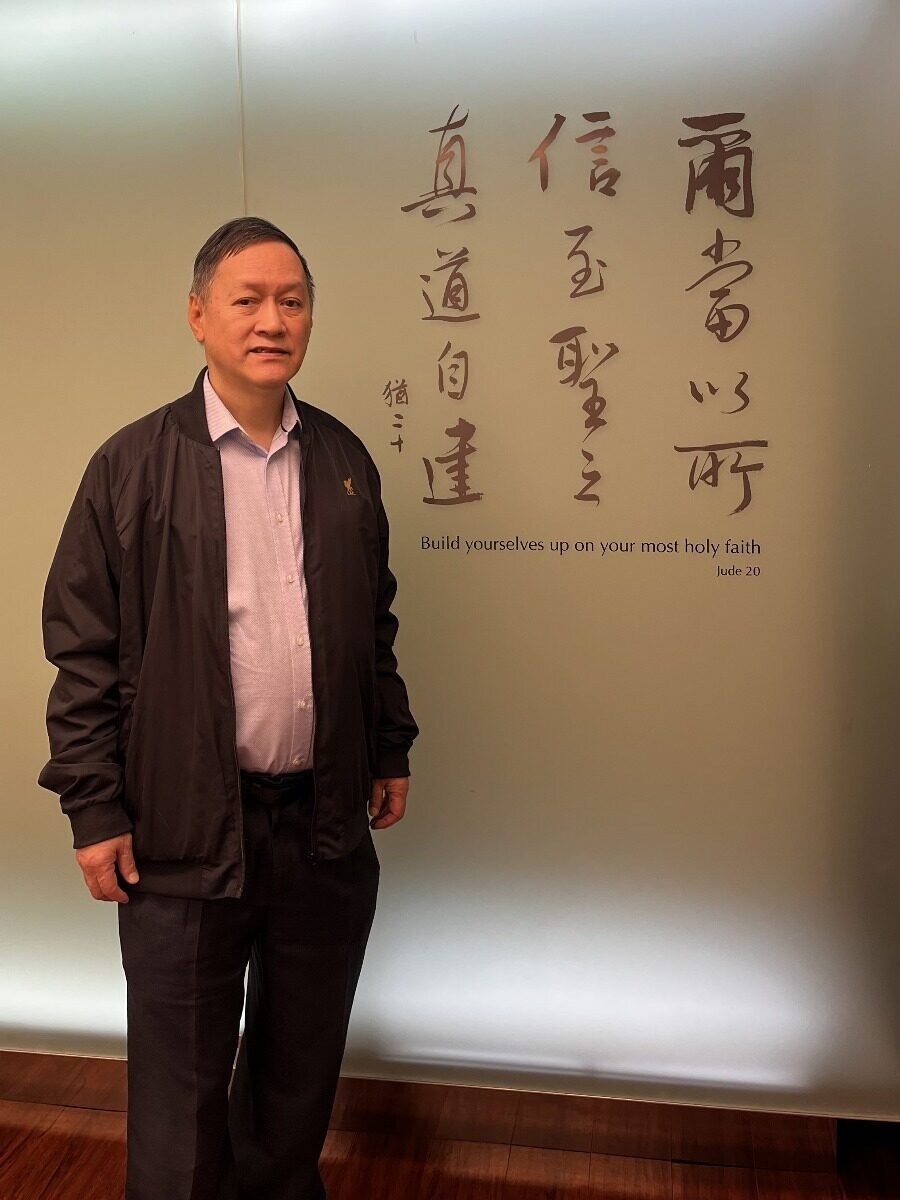 爾當以所
信至聖之
真道自建
猶二十
Build yourselves up on your most holy faith
Jude 20